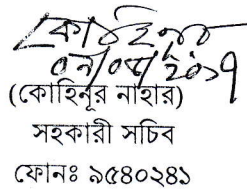 কোহিনূর
০৭/০৫/২০১৭
(কোহিনূর নাহার)
সহকারী সচিব
ফোনঃ ৯৫৪০২৪১